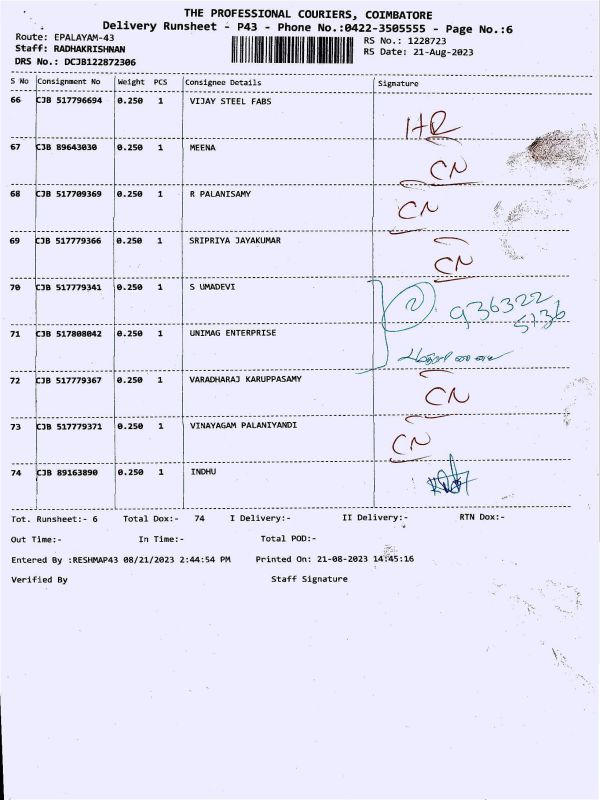 THE PROFESSIONAL COURIERS, COIMBATORE
Delivery Runsheet - P43 - Phone No.:0422-3505555 - Page No.:6
Route: EPALAYAM-43
RS No.: 1228723
Staff: RADHAKRISHNAN
RS Date: 21-Aug-2023
DRS No.: DCJB122872306
S No Consignment No Weight PCS Consignee Details Signature
66 CJB 517796694 0.250 1 VIJAY STEEL FABS
67 CJB 89643030 0.250 1 MEENA CN
68 CJB 517709369 0.250 1 R PALANISAMY CN
69 CJB 517779366 0.250 1 SRIPRIYA JAYAKUMAR CN
70 CJB 517779341 0.250 1 S UMADEVI 2 936322
5136
71 CJB 517808042 0.250 1 UNIMAG ENTERPRISE
72 CJB 517779367 0.250 1 VARADHARAJ KARUPPASAMY CN
73 CJB 517779371 0.250 1 VINAYAGAM PALANIYANDI CN
74 CJB 89163890 0.250 1 INDHU
Tot. Runsheet:- 6 Total Dox:- 74 I Delivery:- II Delivery:- RTN Dox:-
Out Time:- In Time:- Total POD:-
Entered By :RESHMAP43 08/21/2023 2:44:54 PM Printed On: 21-08-2023 14:45:16
Verified By Staff Signature